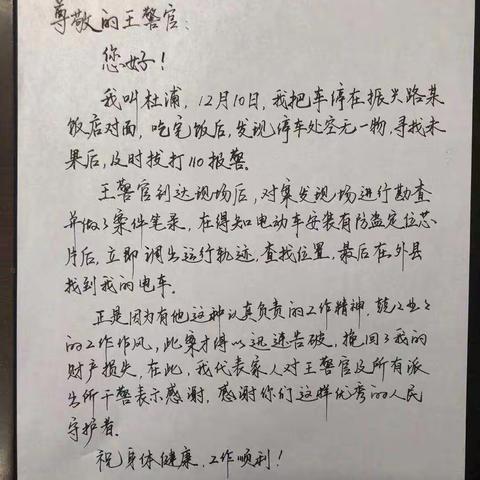 尊敬的王警官:
您好!
我叫杜浦,12月10日,我把车停在振兴路某
饭店对面,吃完饭后,发现停车处空无一物,寻找未
果后,及时拨打110报警。
王警官到达现场后,对案发现场进行勘查
并做了案件笔录,在得知电动车安装有防盗定位芯
片后,立即调出运行轨迹,查找位置,最后在外县
找到我的电车。
正是因为有他这种认真负责的工作精神,兢兢业业
的工作作风,此案才得以迅速告破,挽回了我的
财产损失,在此,我代表家人对王警官及所有派
出所干警表示感谢,感谢你们这样优秀的人民
守护者。
祝身体健康、工作顺利!